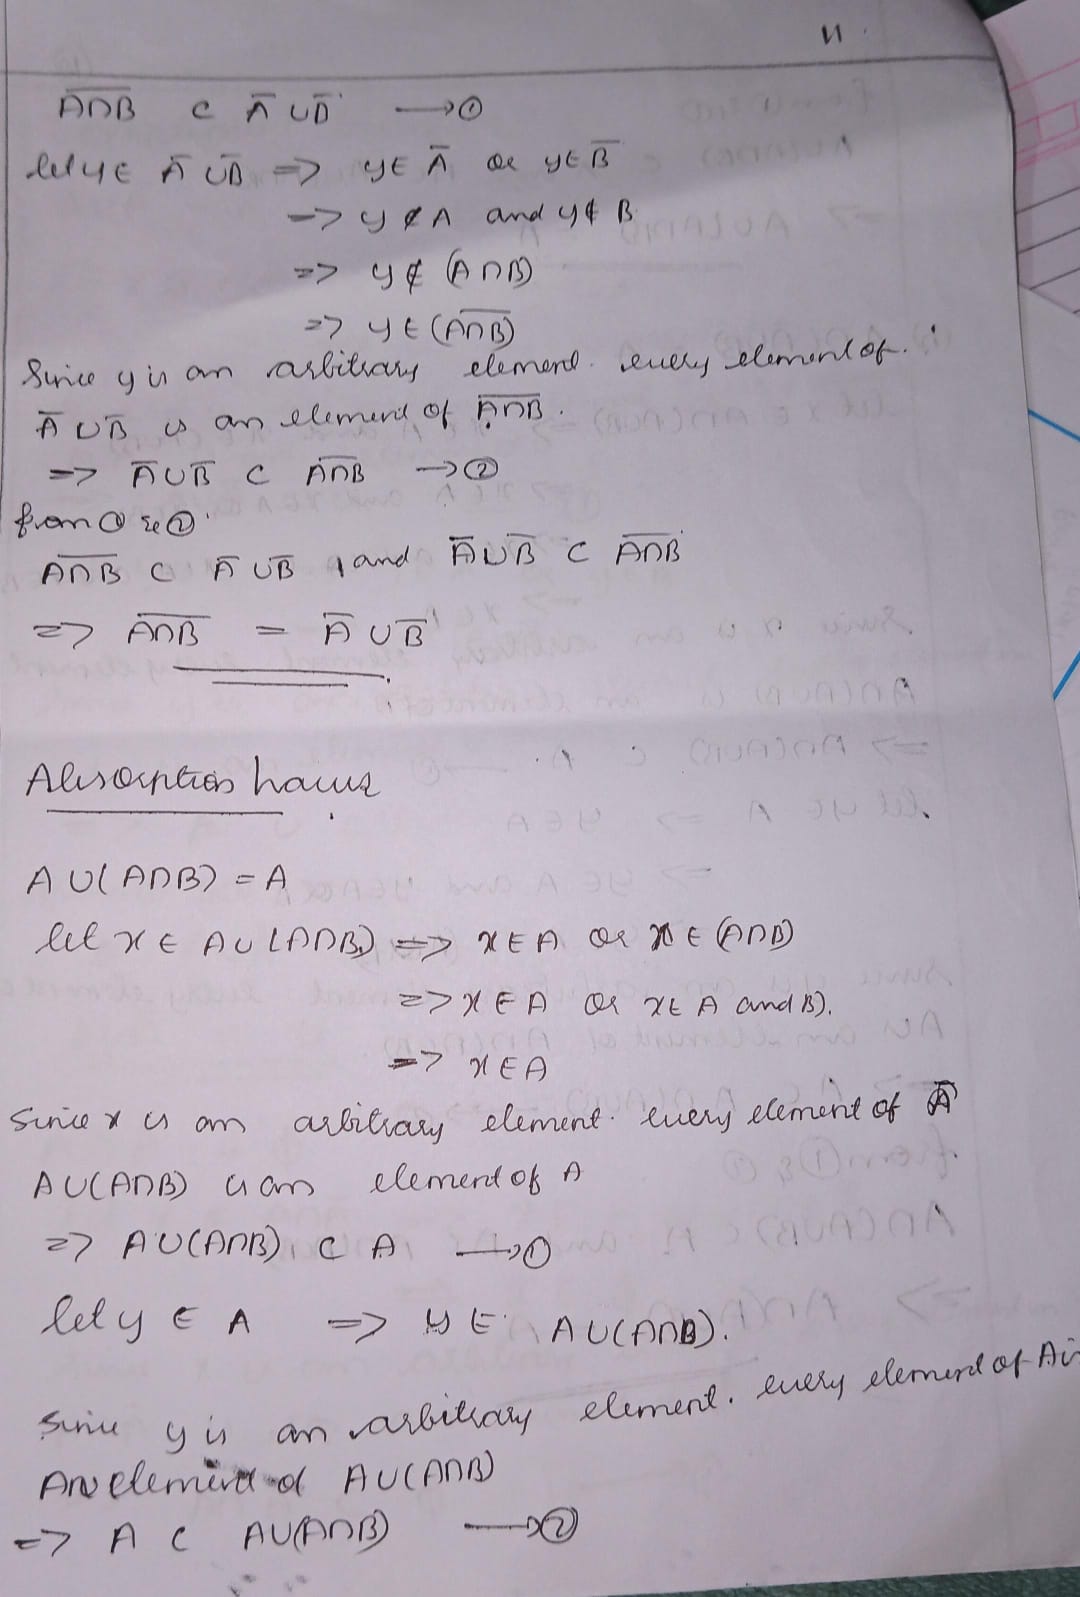 11
A̅∩̅B̅ ⊂ A̅ ∪ B̅ → ①
let y ∈ A̅ ∪ B̅ => y ∈ A̅ or y ∈ B̅
=> y ∉ A and y ∉ B
=> y ∉ (A∩B)
=> y ∈ (A̅∩̅B̅)
Since y is an arbitrary element. every element of
A̅ ∪ B̅ is an element of A̅∩̅B̅.
=> A̅ ∪ B̅ ⊂ A̅∩̅B̅ → ②
from ① & ②
A̅∩̅B̅ ⊂ A̅ ∪ B̅ , and A̅ ∪ B̅ ⊂ A̅∩̅B̅
=> A̅∩̅B̅ = A̅ ∪ B̅
Absorption Laws
A ∪ (A∩B) = A
let x ∈ A ∪ (A∩B) => x ∈ A or x ∈ (A∩B)
=> x ∈ A or x ∈ A and B).
=> x ∈ A
Since x is an arbitrary element. every element of A̅
A ∪ (A∩B) is an element of A
=> A ∪ (A∩B) ⊂ A → ①
let y ∈ A => y ∈ A ∪ (A∩B).
Since y is an arbitrary element. every element of A is
An element of A ∪ (A∩B)
=> A ⊂ A∪(A∩B) → ②